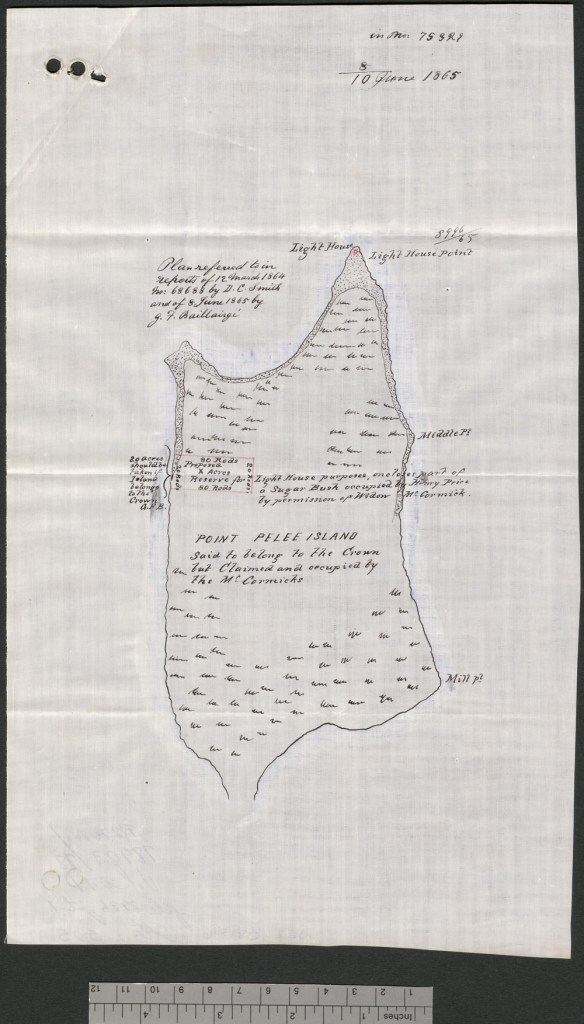 in No. 75898
8
10 June 1865
8996
65
Light House
Light House Point
Plan referred to in
reports of 12 March 1864
No: 68688 by D. C. Smith
and of 8 June 1865 by
G. F. Baillairgé
Middle Pt
20 acres
should be
taken if
Island
belongs
to the
Crown
G.F.B.
80 Rods
20 Rods
Proposed
Acres
Reserve for
80 Rods
20 Rods
Light House purposes, on
part of
a Sugar Bush occupied by Henry Price
by permission of Widow McCormick.
POINT PELEE ISLAND
Said to belong to the Crown
but Claimed and occupied by
the McCormicks
Mill Pt
12 11 10 9 8 7 6 5 4 3 2 1
4 3 2 1 Inches